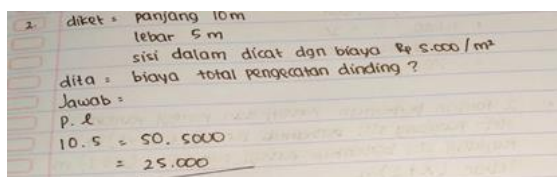 2. diket : panjang 10m
lebar 5 m
sisi dalam dicat dgn biaya Rp 5.000/m²
dita : biaya total pengecatan dinding ?
Jawab :
P. l
10. 5 = 50. 5000
= 25.000